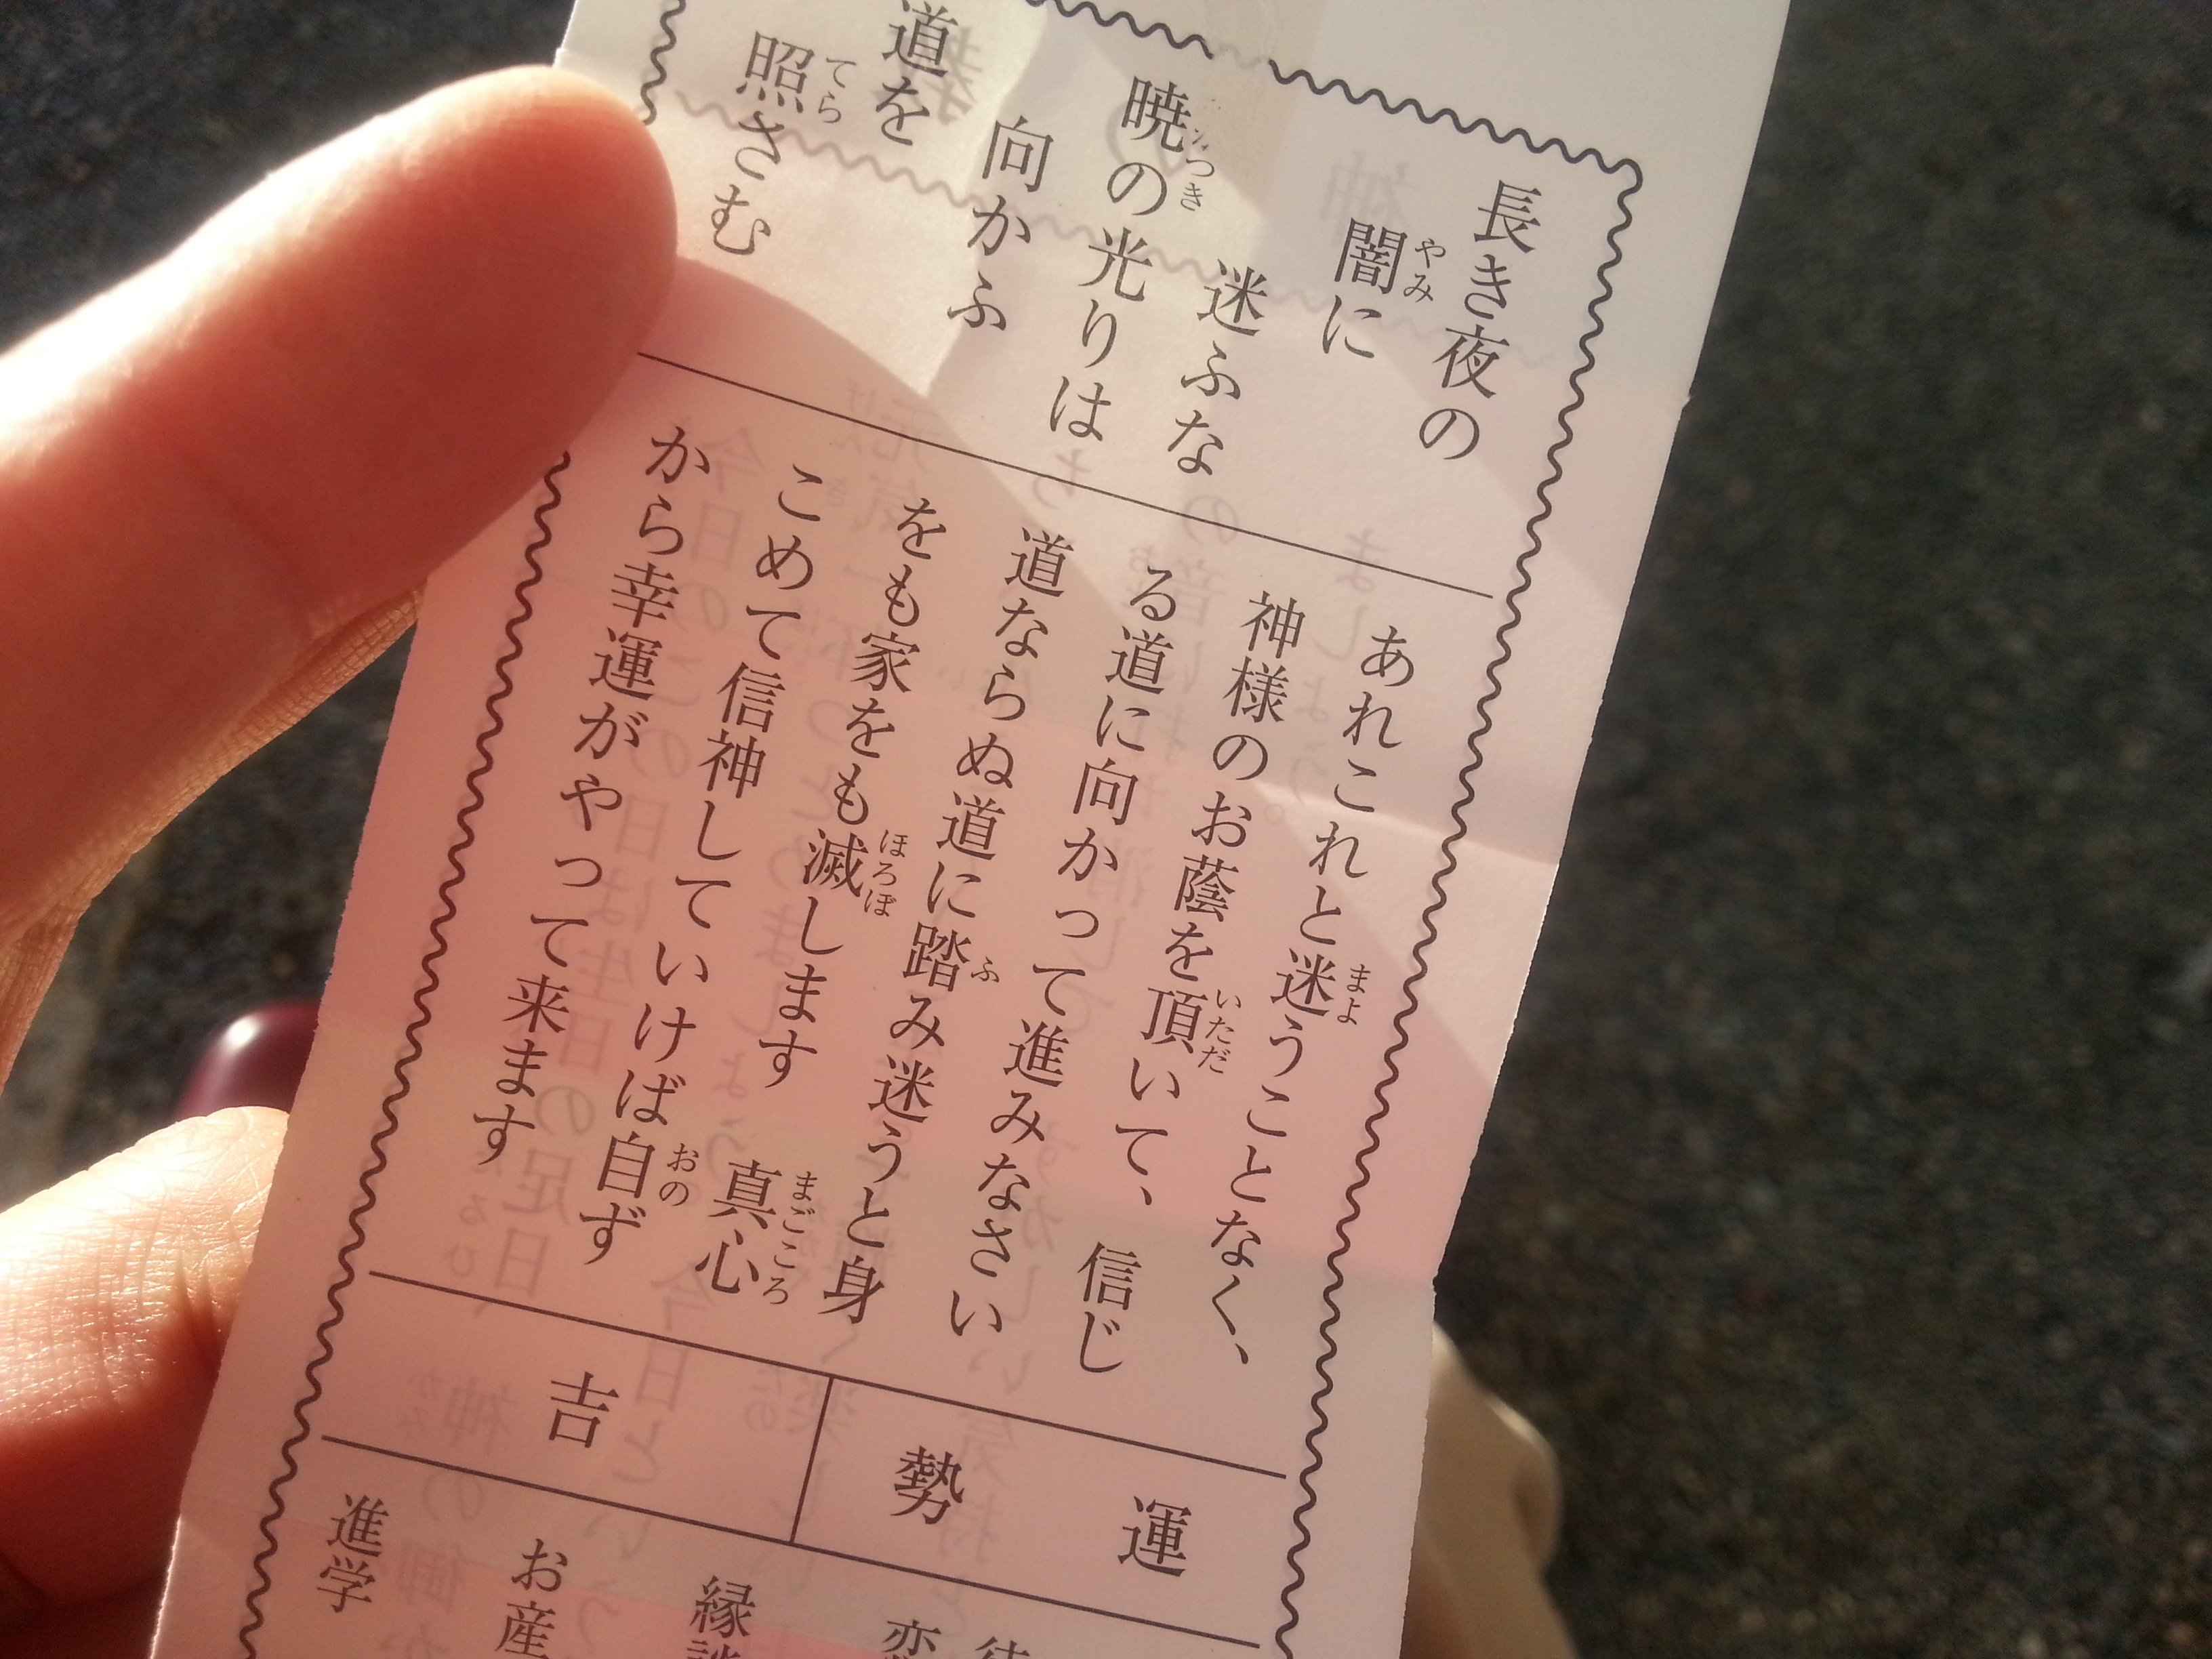 長き夜の
闇に
迷ふな
暁の光りは
向かふ
道を
照さむ
あれこれと迷うことなく、
神様のお蔭を頂いて、信じ
る道に向かって進みなさい
道ならぬ道に踏み迷うと身
をも家をも滅します　真心
こめて信神していけば自ず
から幸運がやって来ます
運勢
吉
縁談
お産
進学